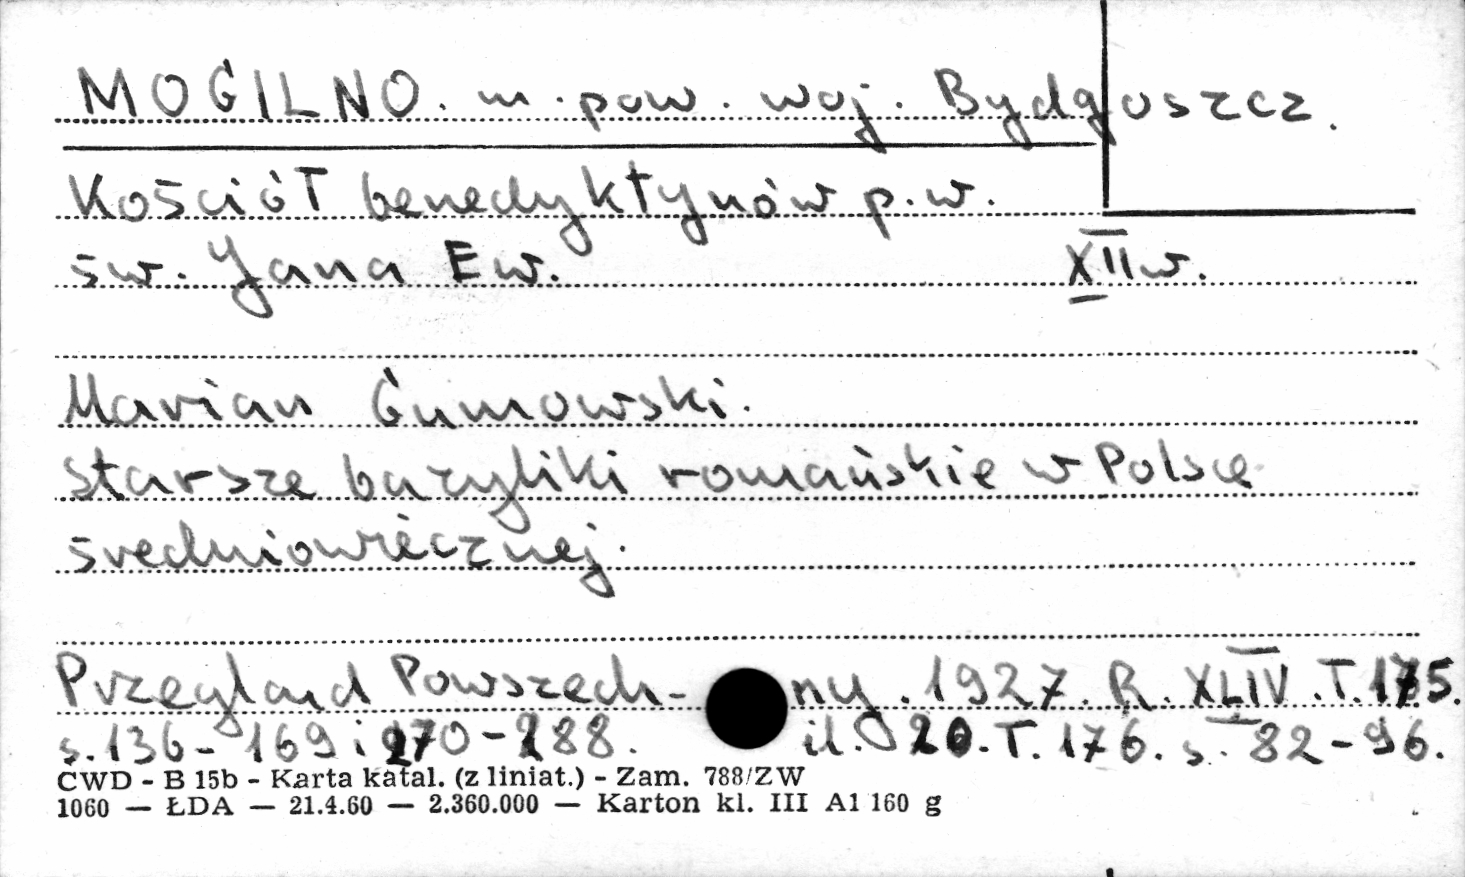 MOGILNO. m. pow. woj. Bydgoszcz.
Kościół benedyktynów p.w.
św. Jana Ew. XII w.
Marian Gumowski.
Starsze bazyliki romańskie w Polsce
średniowiecznej.
Przegląd Powszech- ny. 1927. R. XLIV. T. 175.
s. 136-169 i 270-288. il. 20. T. 176. s. 82-96.
CWD - B 15b - Karta katal. (z liniat.) - Zam. 788/ZW
1060 — ŁDA — 21.4.60 — 2.360.000 — Karton kl. III A1 160 g